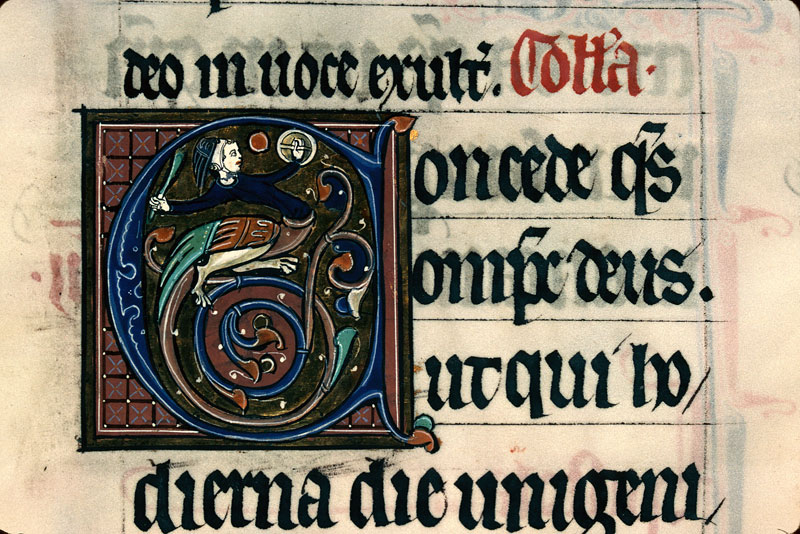 deo in uoce exult̃. Coll̃a.
Concede q̃s
omp̃x deus.
ut qui ho
dierna die unigeni